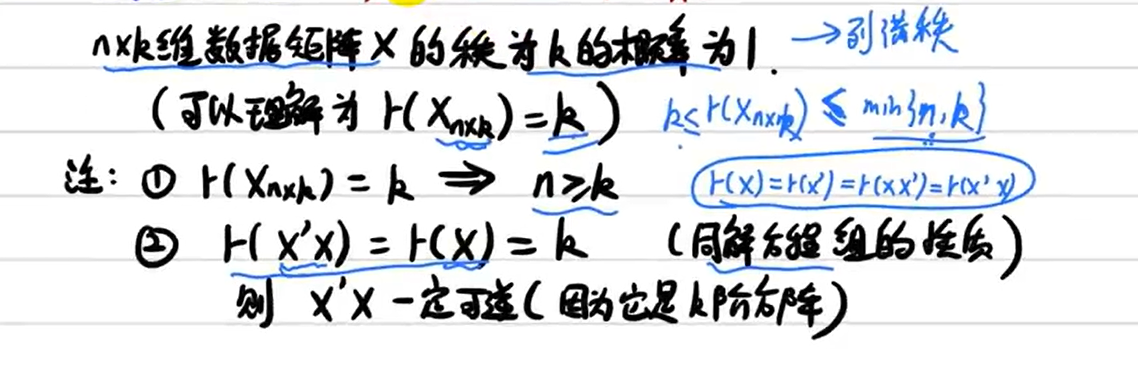 n×k维数据矩阵X的秩为k的概率为1. →列满秩
(可以理解为 r(Xn×k)=k) k≤r(Xn×k)≤min{n,k}
注: ① r(Xn×k)=k ⇒ n≥k (r(X)=r(X')=r(XX')=r(X'X))
② r(X'X)=r(X)=k (同解方程组的性质)
则 X'X一定可逆(因为它是k阶方阵)